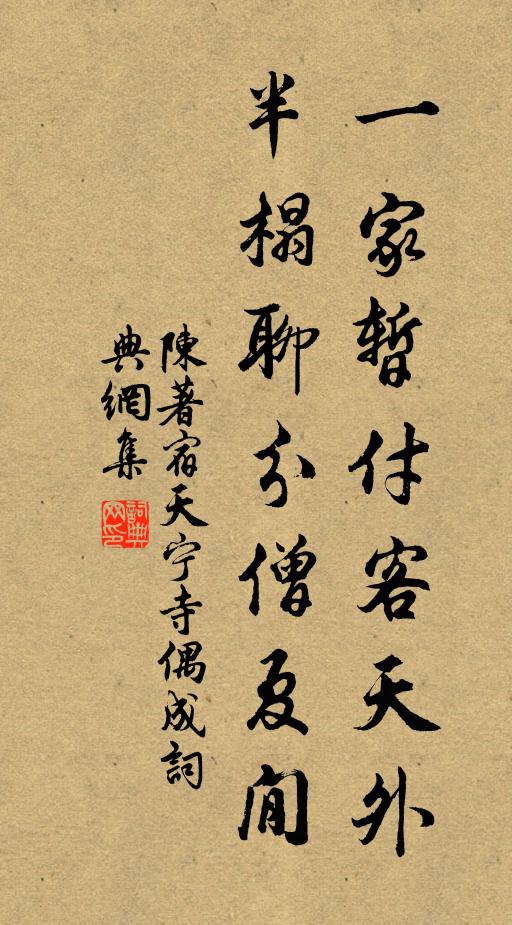 一家暫付客天外
半榻聊分僧夏間
陳著宿天宁寺偶成詞
典網集
詞典网印